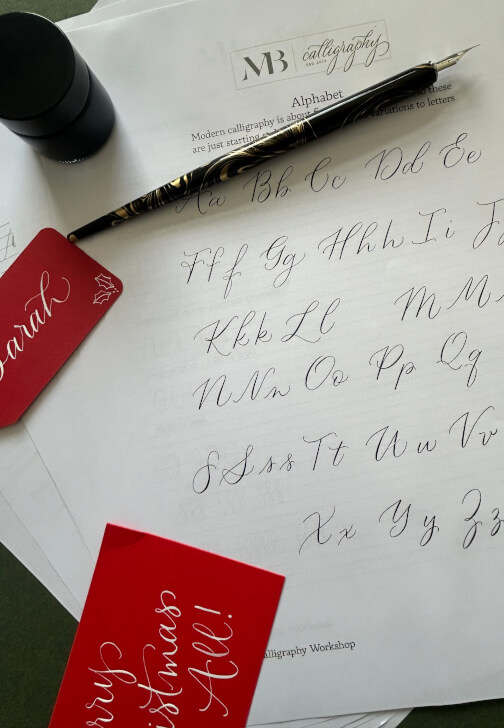 MB calligraphy
EST. 2018
Alphabet
Modern calligraphy is about these
are just starting variations to letters
Aa Bb Cc Dd Ee
Fff Gg Hhh Ii
Kkk Ll M M
NNn Oo Pp Qq
SSss Tt Uu Vv
Xx Yy Zz
Sarah
Christmas
All!
Calligraphy Workshop